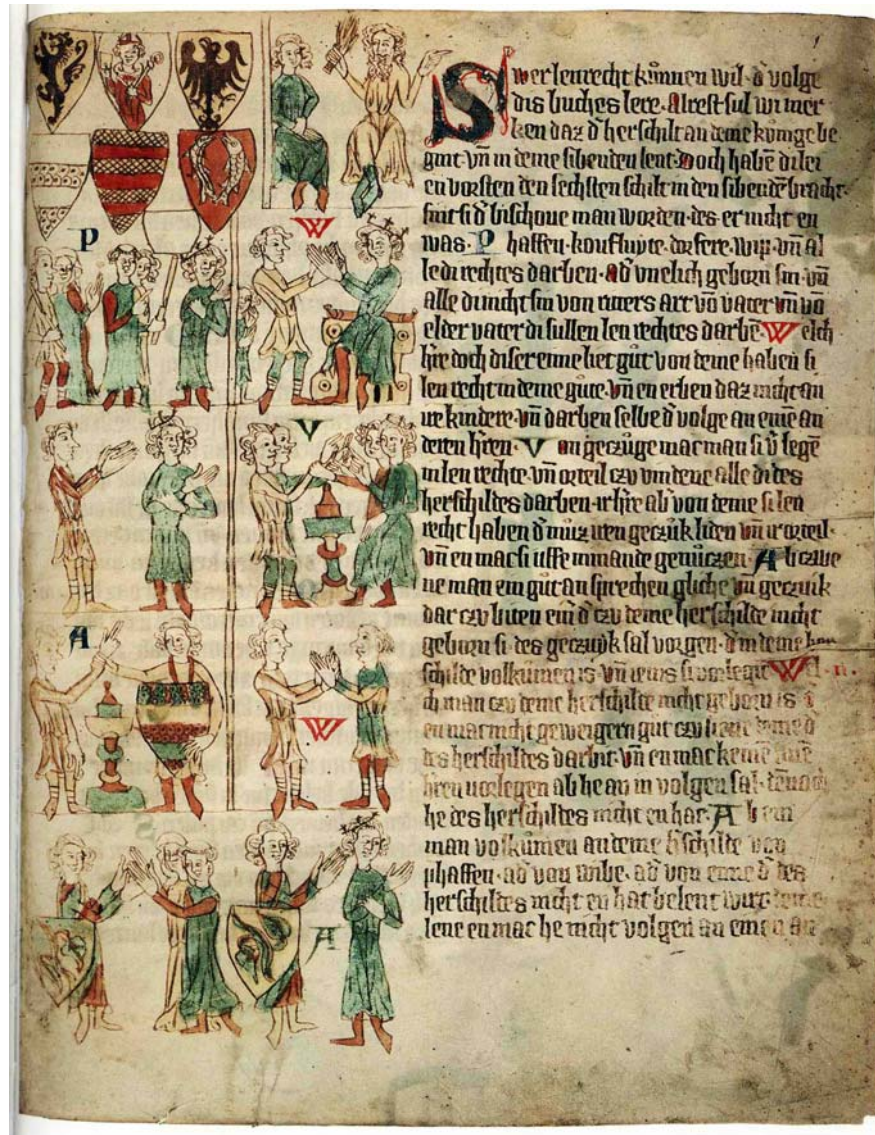 Swer lenrecht kunnen wil · d volge
dis buches lere · Alrest sul wi mer
ken daz d herschilt an deme kunige be
gint vñ in deme sibenden lent · Doch habē di lei
en vorsten den sechsten schilt in den sibendē bracht ·
sint si d bischoue man worden · des er nicht en
was · Phaffen · koufluyte · dorfere · wip · vñ al
le di rechtes darben · ad vnelich geborn sin · vñ
alle di nicht sin von ritters art vō vater vñ vō
elder vater di sullen len rechtes darbē · Welch
hre doch diser eime liet gut von deme haben si
len recht in deme gute · vñ en erben daz nicht an
ire kindere · vñ darben selbe d volge an einē an
deren hren · Von geczuge mac man si v legē
in len rechte · vñ orteil czu vindene alle di des
herschildes darben · ir hre ab von deme si len
recht haben d muz iren geczuk liden vñ ir orteil ·
vñ en mac si uffe nimande genuczen · Ab czwe
ne man ein gut an sprechen gliche vñ geczuk
dar czu biten ein d czu deme herschilde nicht
geborn si · des geczuk sal vorgen · d in deme her
schilde volkumen is · vñ iens si vorlegit · Wel
ch man czu deme herschilde nicht geborn is
en mac nicht geweigern gut czu liene deme d
des herschildes darbit · vñ en mac keinē
hren vorlegen ab he an in volgen sal · dē noch
he des herschildes nicht en hat · Ab ein
man volkumen an deme hschilde von
phaffen · ad von wibe · ad von eime d des
herschildes nicht en hat belent wirt deme
lene en mac he nicht volgen an einen an
P
W
V
A
W
A